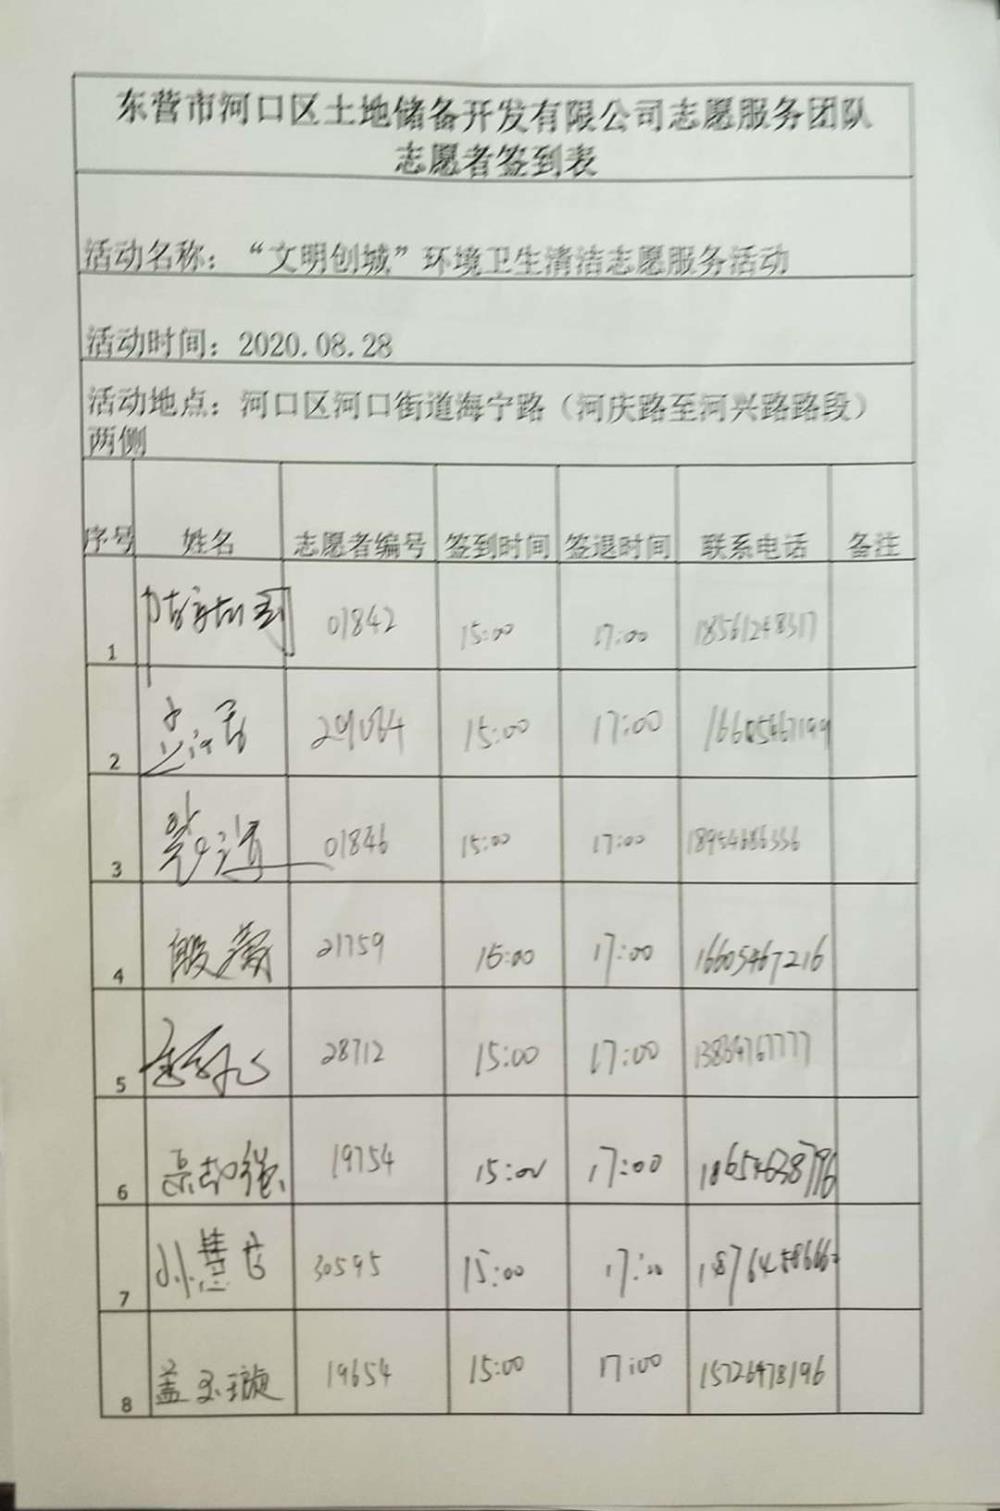 东营市河口区土地储备开发有限公司志愿服务团队
志愿者签到表
活动名称：“文明创城”环境卫生清洁志愿服务活动
活动时间：2020.08.28
活动地点：河口区河口街道海宁路（河庆路至河兴路路段）
两侧
序号 姓名 志愿者编号 签到时间 签退时间 联系电话 备注
1 01842 15:00 17:00 18561248317
2 15:00 17:00
3 01846 15:00 17:00 18954686336
4 殷 21759 15:00 17:00 16605467216
5 28712 15:00 17:00
6 19754 15:00 17:00 18654638796
7 孙慧 30595 15:00 17:00
8 盖玉璇 19654 15:00 17:00 15726478196